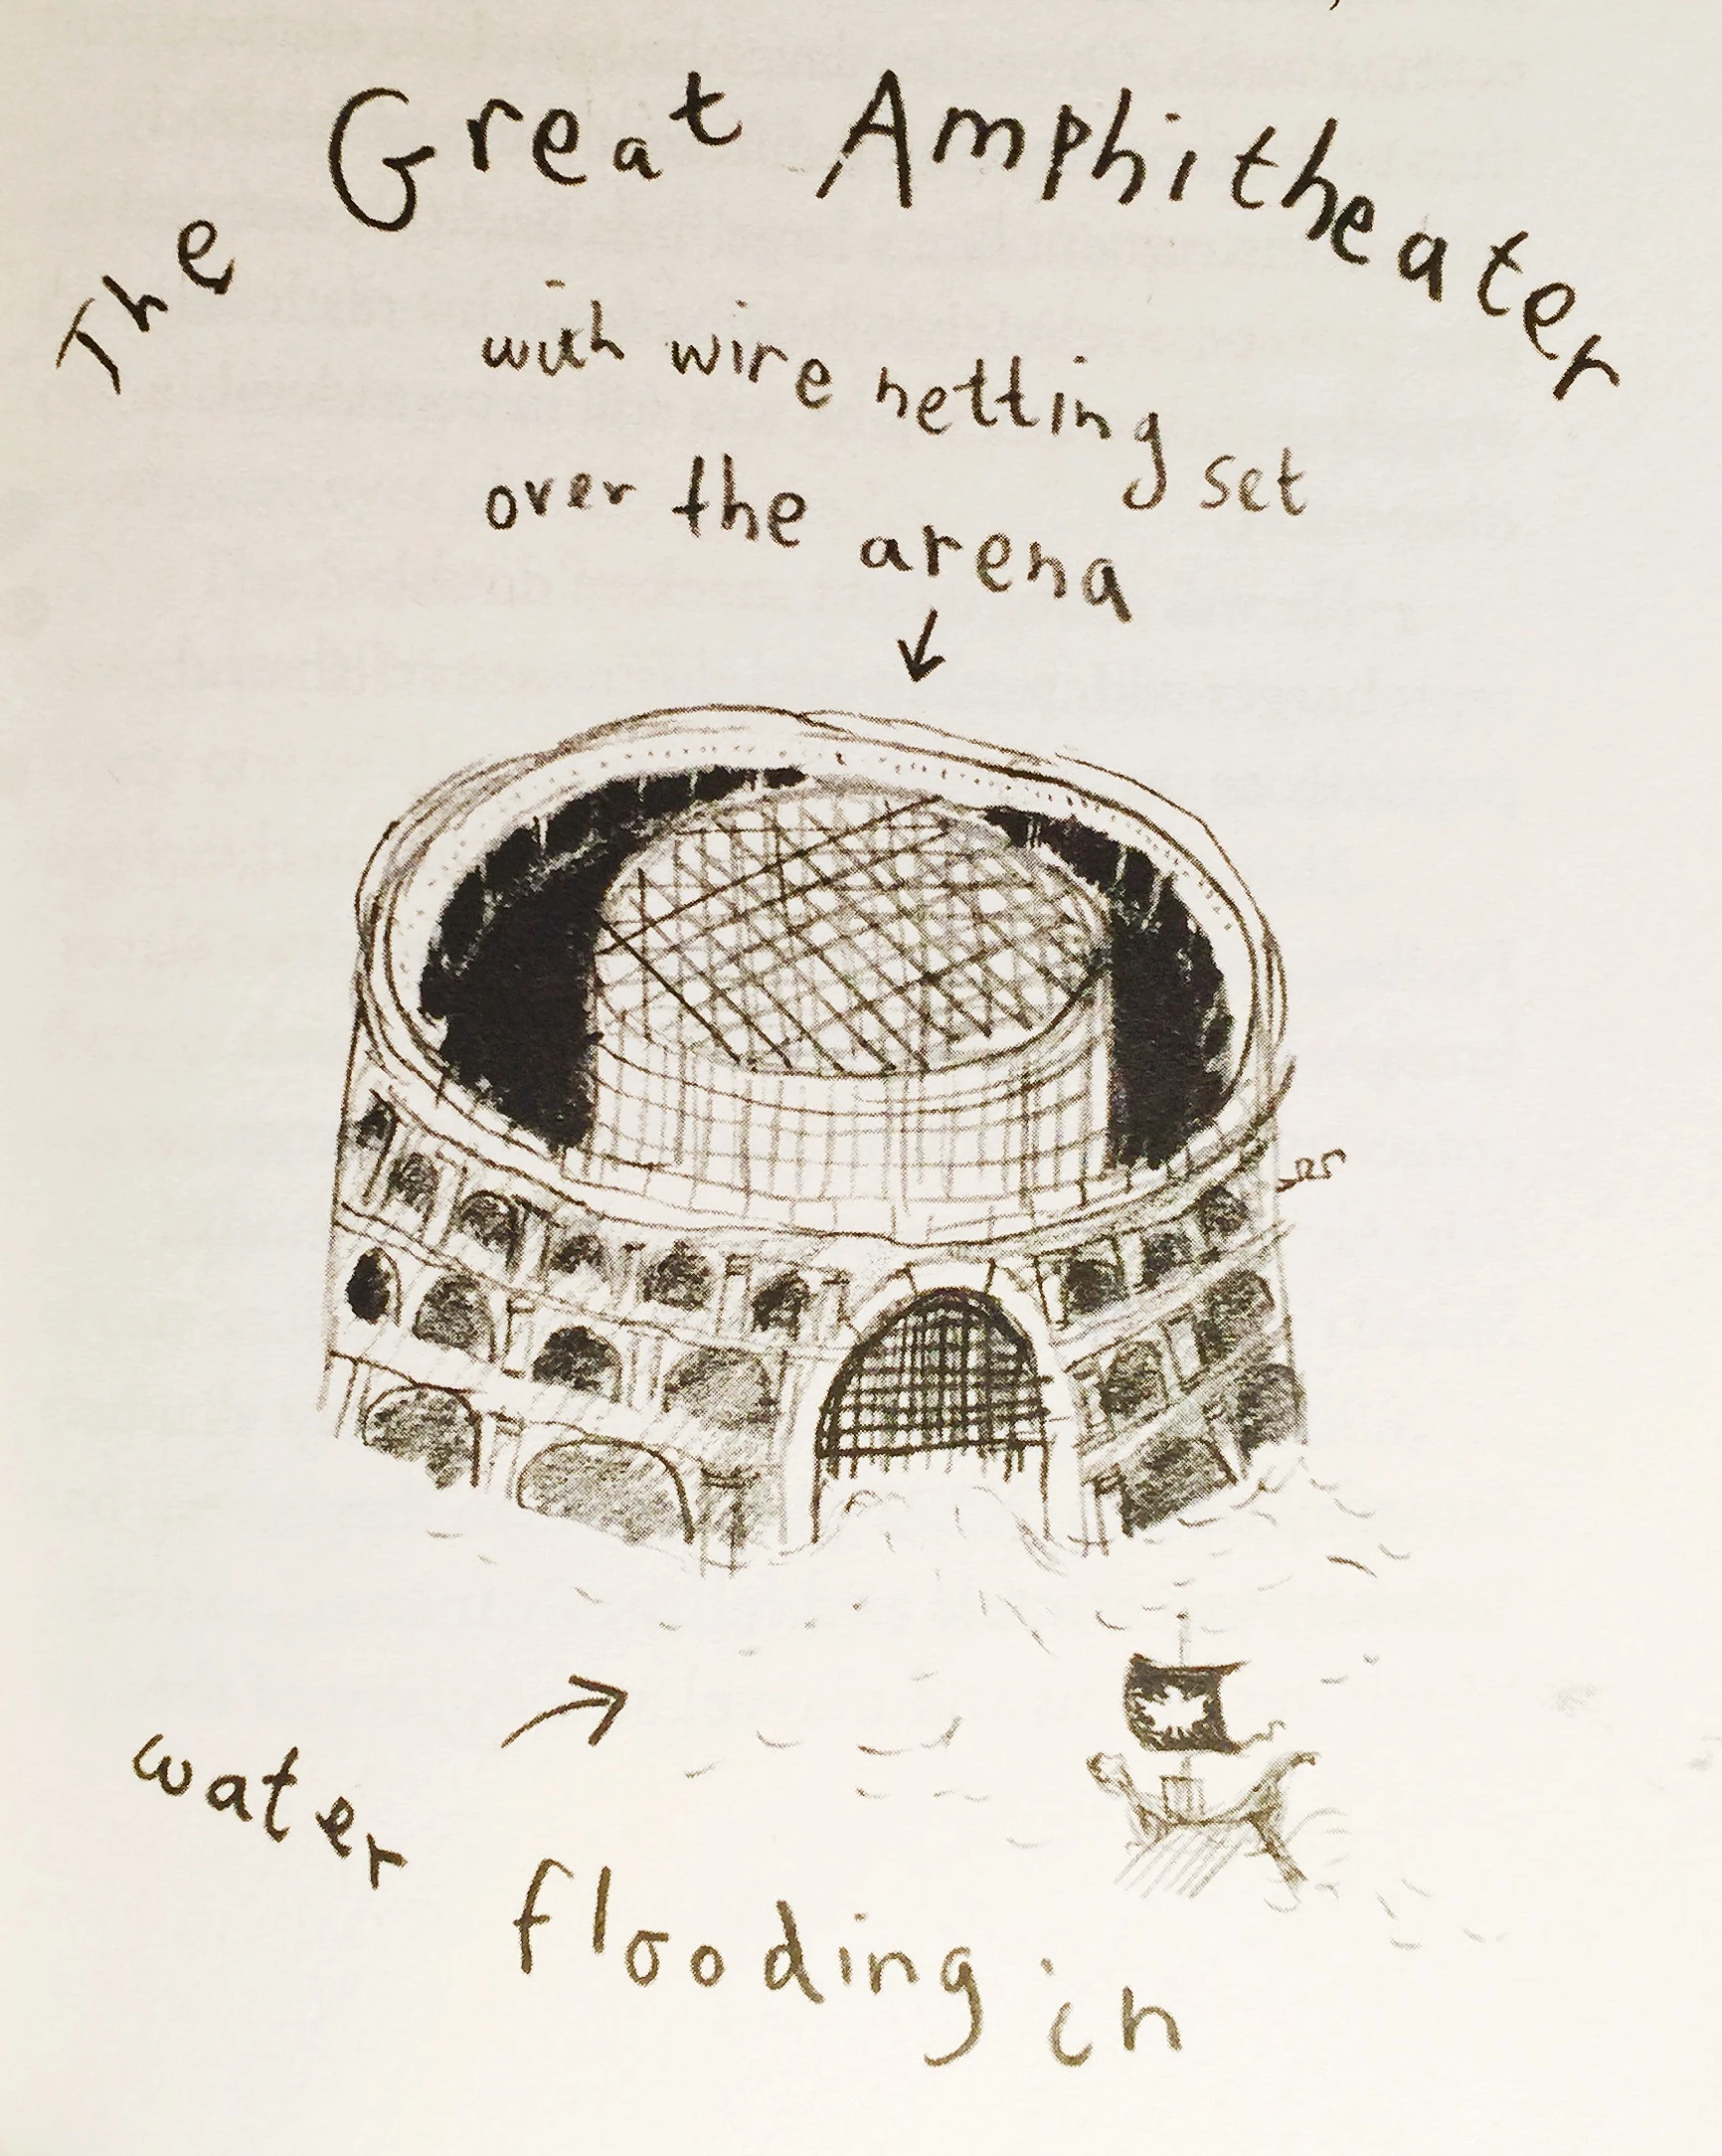 The Great Amphitheater
with wire netting set
over the arena
water flooding in